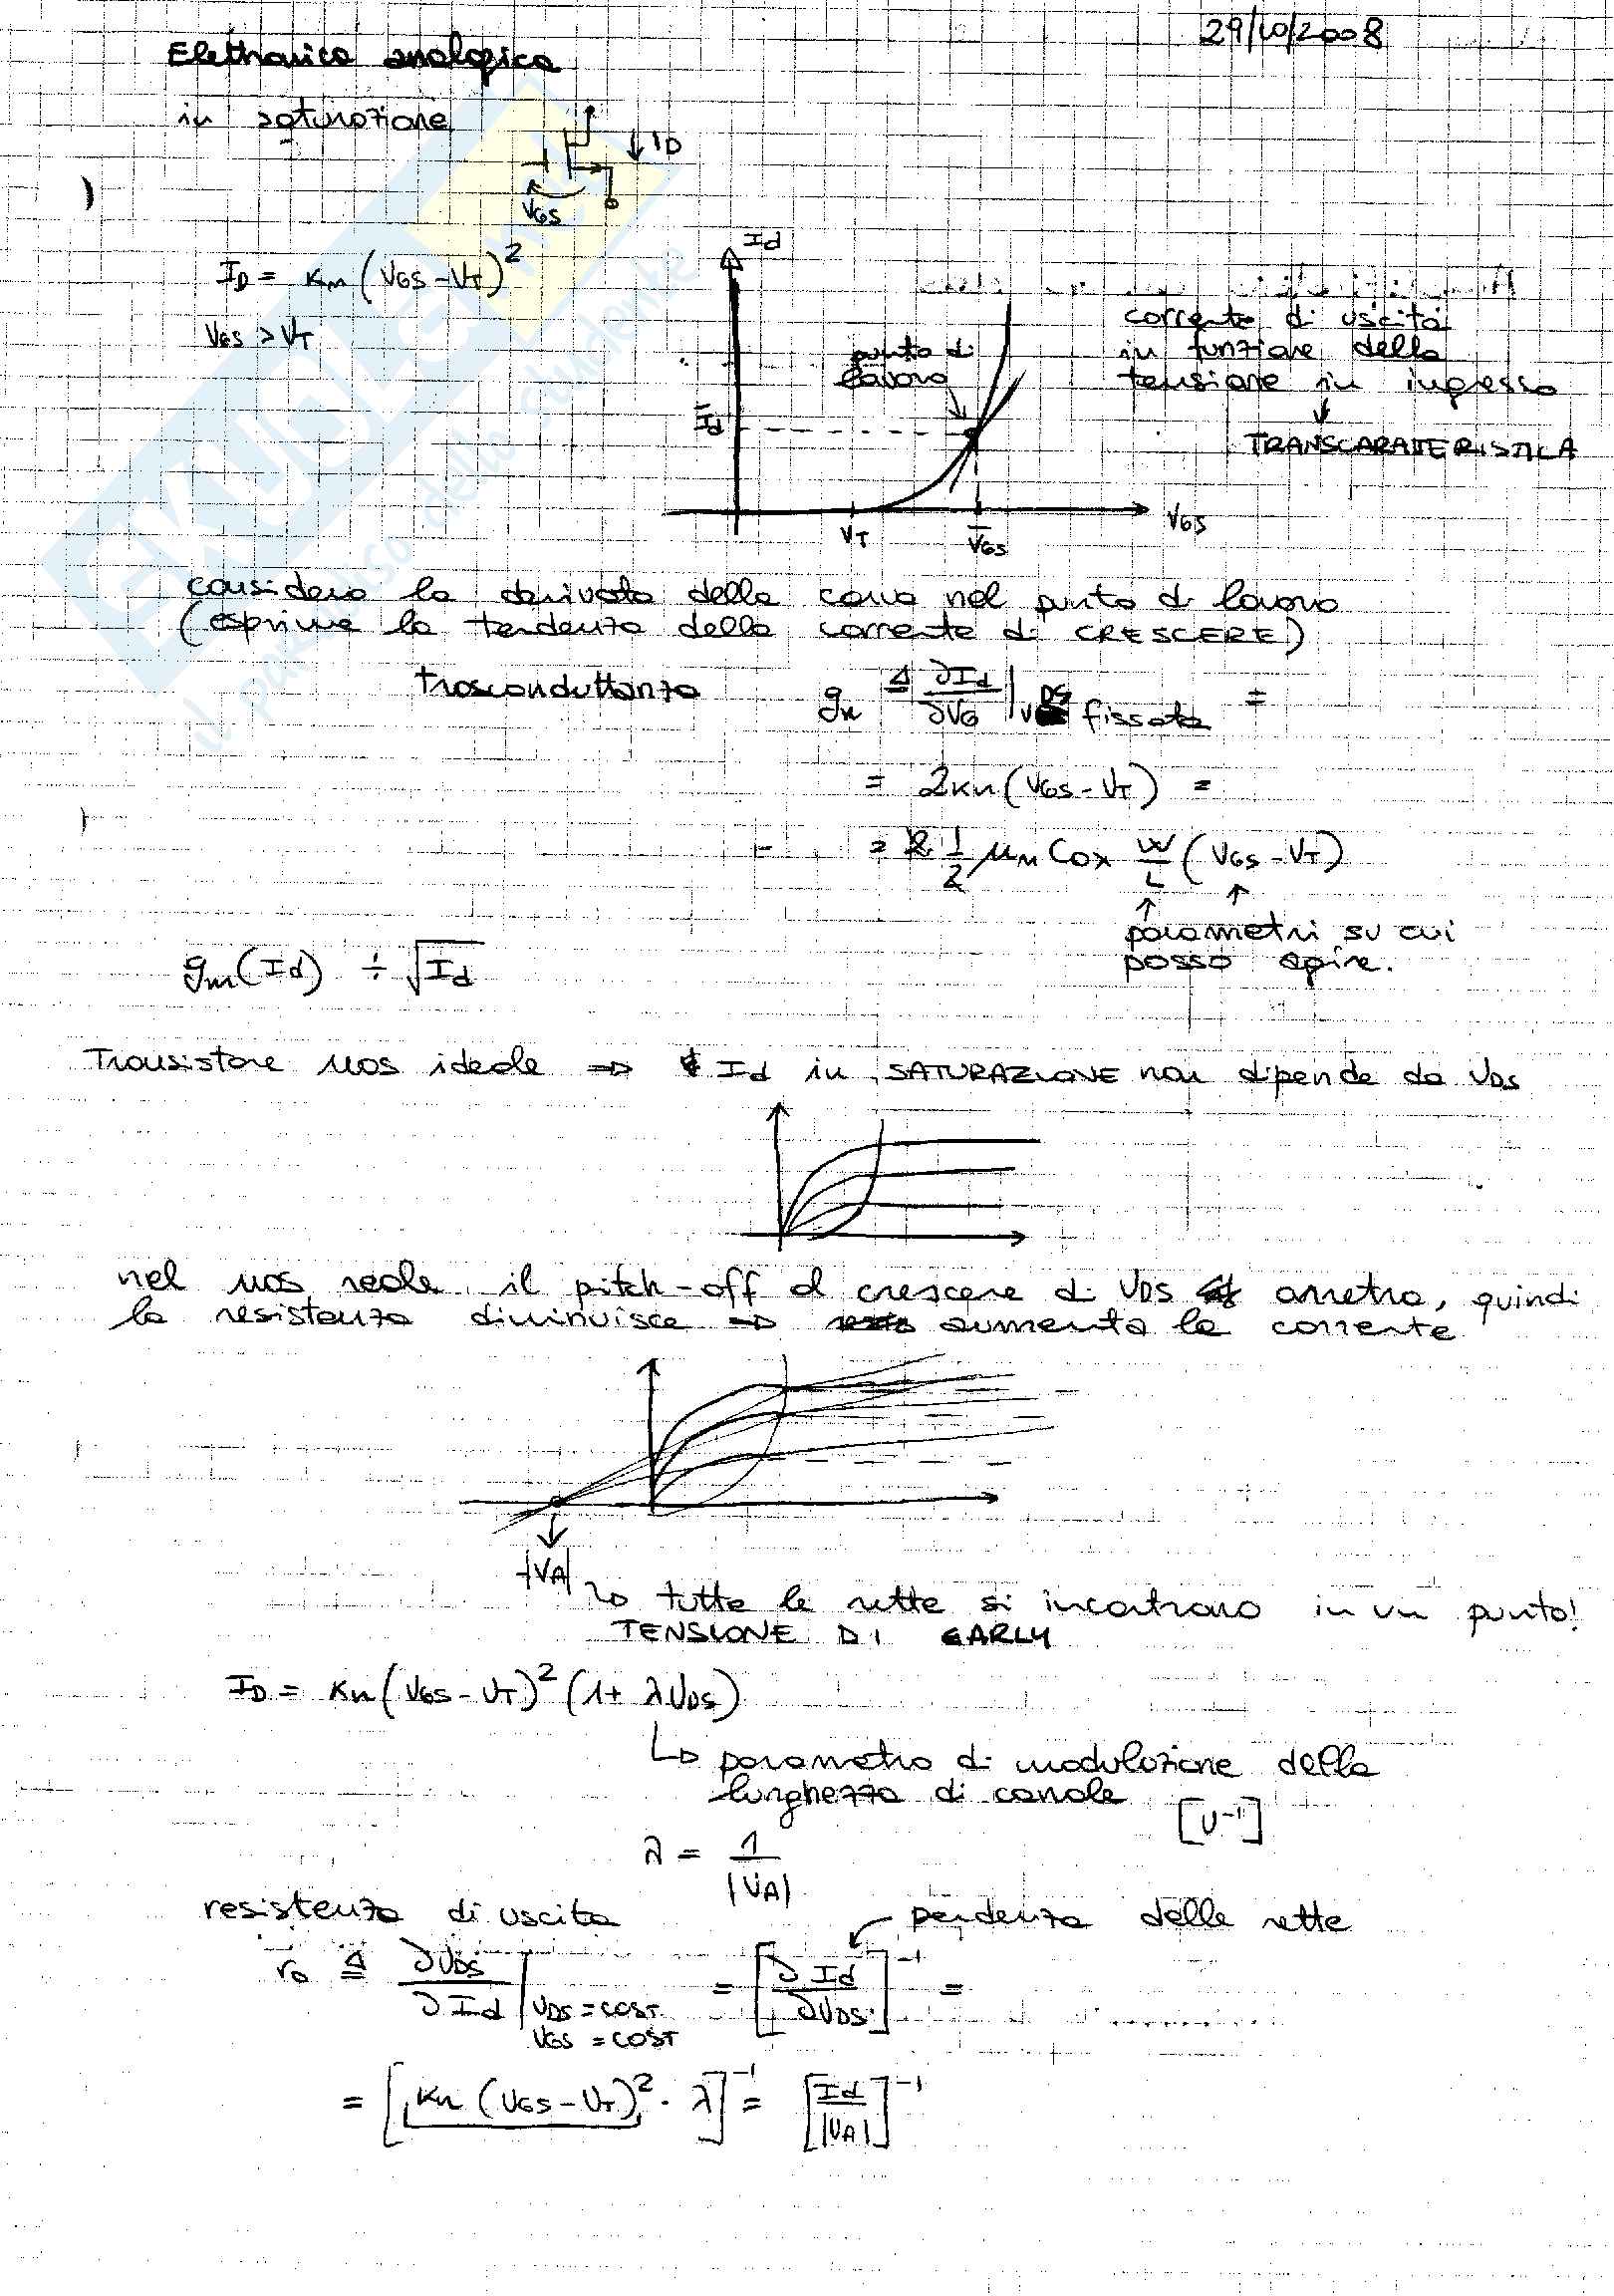 29/10/2008
Elettronica analogica
in saturazione
ID
VGS
Id
ID = Kn (VGS - VT)²
VGS > VT
corrente di uscita
in funzione della
tensione in ingresso
↓
TRANSCARATTERISTICA
punto di
lavoro
Id
VT
VGS
VGS
considero la derivata della curva nel punto di lavoro
(esprime la tendenza della corrente di CRESCERE)
trasconduttanza gm ≜ ∂Id/∂VG | VDS fissata =
= 2Kn (VGS - VT) =
= 2 1/2 μn Cox W/L (VGS - VT)
parametri su cui
posso agire.
gm (Id) ÷ √Id
Transistore MOS ideale ⇒ Id in SATURAZIONE non dipende da VDS
nel MOS reale il pitch-off al crescere di VDS arretra, quindi
la resistenza diminuisce ⇒ aumenta la corrente
-|VA|
↳ tutte le rette si incontrano in un punto!
TENSIONE DI EARLY
ID = Kn (VGS - VT)² (1 + λVDS)
↳ parametro di modulazione della
lunghezza di canale [V⁻¹]
λ = 1/|VA|
resistenza di uscita
pendenza delle rette
ro ≜ ∂VDS/∂Id | VDS = COST VGS = COST = [∂Id/∂VDS]⁻¹ =
= [Kn (VGS - VT)² · λ]⁻¹ = [Id/|VA|]⁻¹